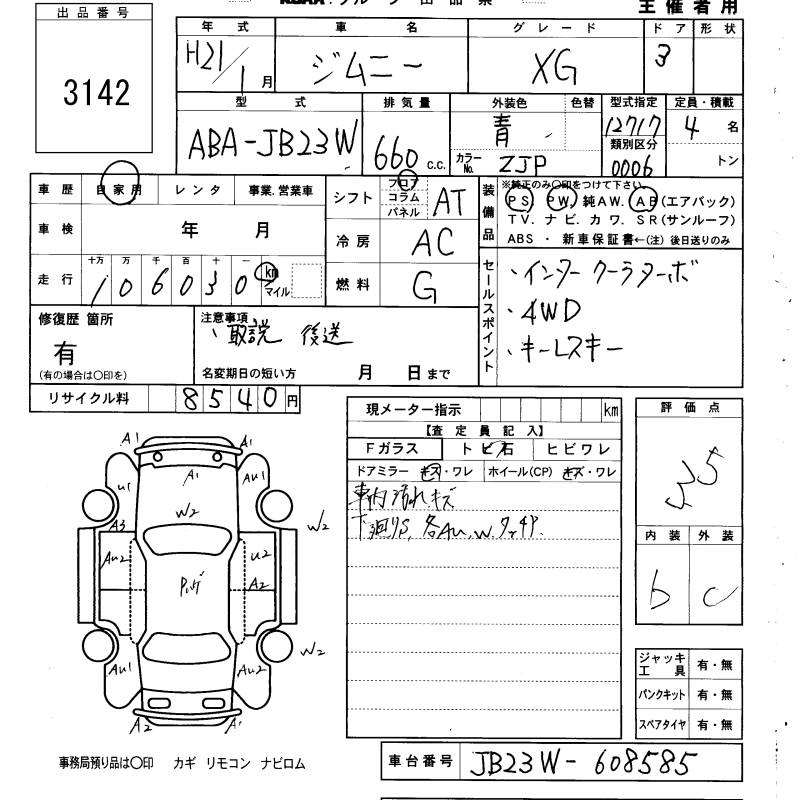 主催者用
出品番号
3142
年式 車名 グレード ドア 形状
H21/1月 ジムニー XG 3
型式 排気量 外装色 色替 型式指定 定員・積載
ABA-JB23W 660 c.c. 青 12717 4名
カラーNo. ZJP 類別区分 0006 トン
車歴 自家用 レンタ 事業.営業車
車検 年 月
走行 十万 万 千 百 十 一
106030 km マイル
シフト フロア コラム パネル AT
冷房 AC
燃料 G
装備品 ※純正のみ○印をつけて下さい
PS. PW. 純AW. AB(エアバック)
TV. ナビ. カワ. SR(サンルーフ)
ABS ・ 新車保証書←(注) 後日送りのみ
セールスポイント
・インタークーラターボ
・4WD
・キーレスキー
修復歴 箇所
有
(有の場合は○印を)
注意事項
、取説 後送
名変期日の短い方 月 日まで
リサイクル料 8540円
現メーター指示 km
【査定員記入】
Fガラス トビ石 ヒビワレ
ドアミラー キズ・ワレ ホイール(CP) キズ・ワレ
車内汚れキズ
下廻りS, 各AU, W
評価点
3.5
内装 外装
b c
ジャッキ工具 有・無
パンクキット 有・無
スペアタイヤ 有・無
A1 A1
A1
U1 AU1
W2 W2
A3
AU2 U2
A2
W2
AU1 AU2
A2 A1
事務局預り品は○印 カギ リモコン ナビロム
車台番号 JB23W-608585